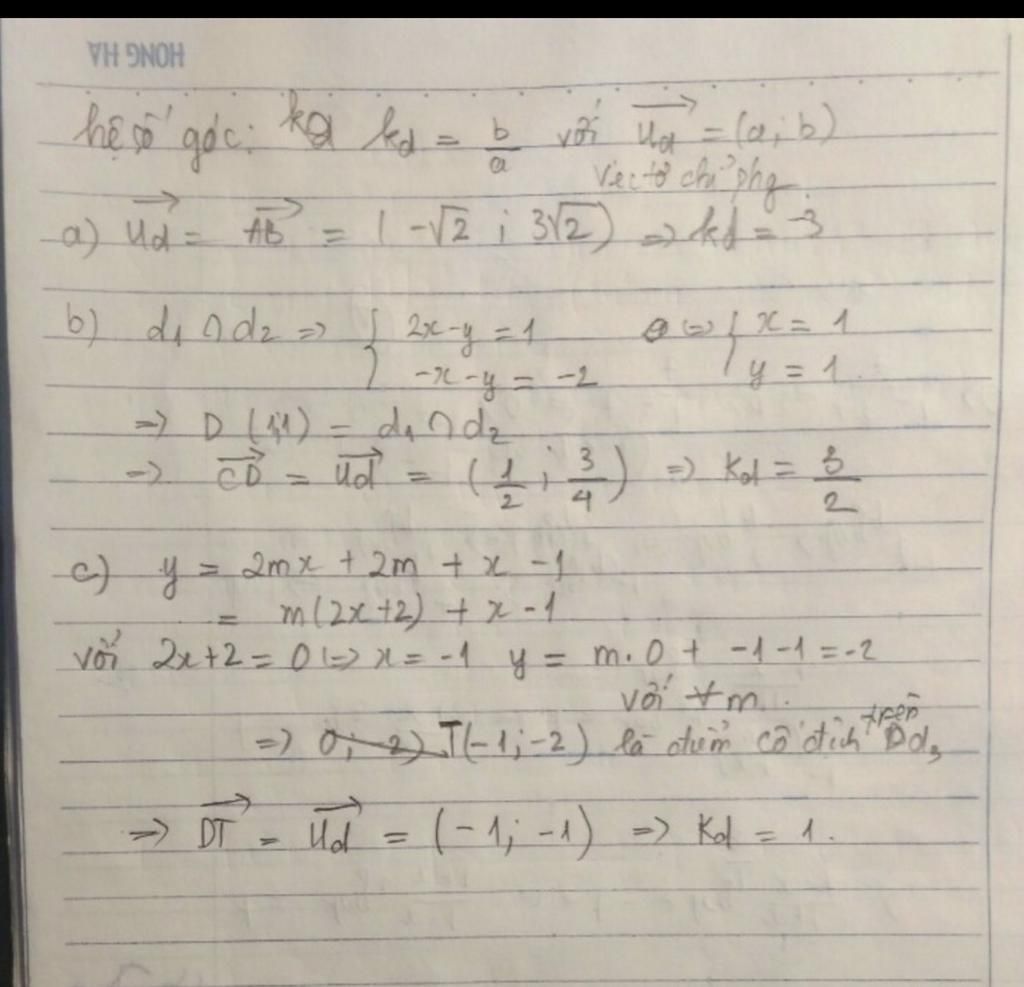 HONG HA
hệ số góc: kd = b/a với →ud = (a; b)
vectơ chỉ phg
a) →ud = →AB = (-√2 ; 3√2) => kd = -3
b) d1 ∩ d2 => { 2x-y = 1 <=> { x = 1
-x-y = -2 y = 1
=> D (1;1) = d1 ∩ d2
=> →CD = →ud = (1/2 ; 3/4) => Kd = 3/2
c) y = 2mx + 2m + x - 1
= m(2x+2) + x - 1
với 2x+2 = 0 <=> x = -1 y = m.0 + -1-1 = -2
với ∀m.
=> T(-1;-2) là điểm cố định trên d3
=> →DT = →ud = (-1; -1) => Kd = 1.